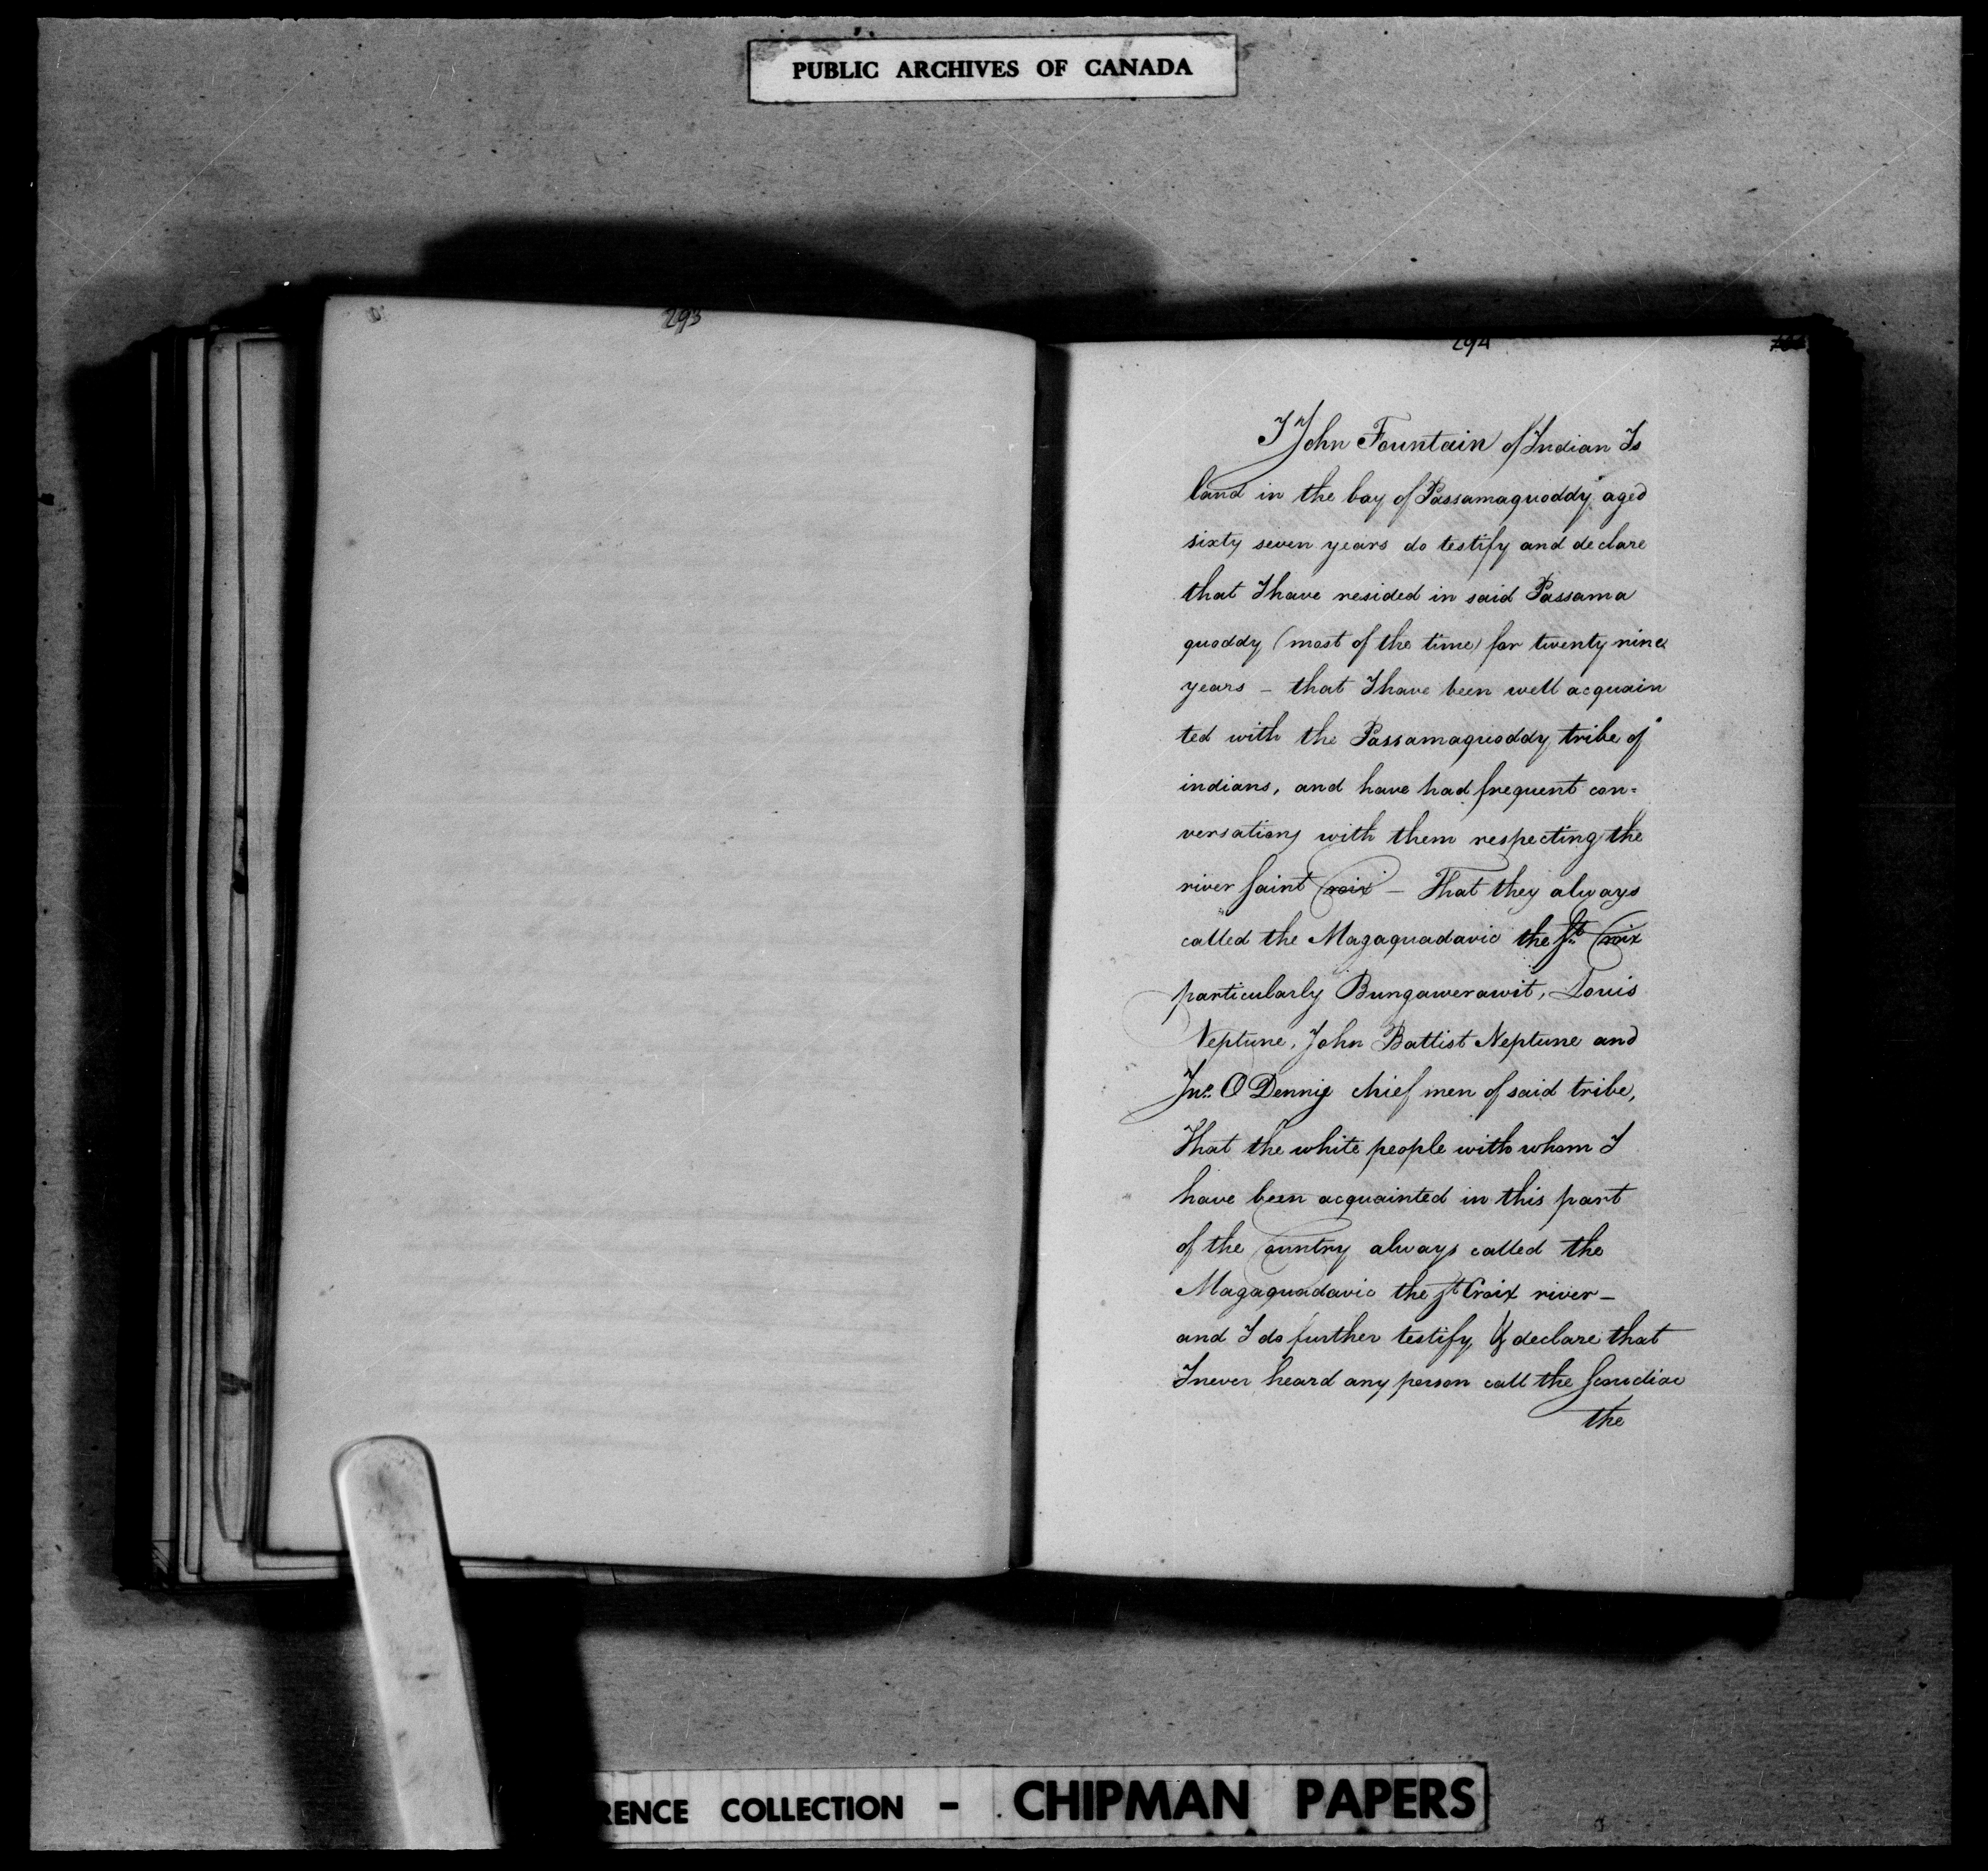 PUBLIC ARCHIVES OF CANADA
293
294
I John Fountain of Indian Is
land in the bay of Passamaquoddy aged
sixty seven years do testify and declare
that I have resided in said Passama
quoddy (most of the time) for twenty nine
years - that I have been well acquain
ted with the Passamaquoddy tribe of
indians, and have had frequent con=
versations with them respecting the
river Saint Croix - That they always
called the Magaquadavic the St. Croix
particularly Bungawerawit, Louis
Neptune, John Battist Neptune and
Jno. O Dennie chief men of said tribe,
That the white people with whom I
have been acquainted in this part
of the Country always called the
Magaquadavic the St Croix river -
and I do further testify & declare that
I never heard any person call the Scoudiac
the
RENCE COLLECTION - CHIPMAN PAPERS